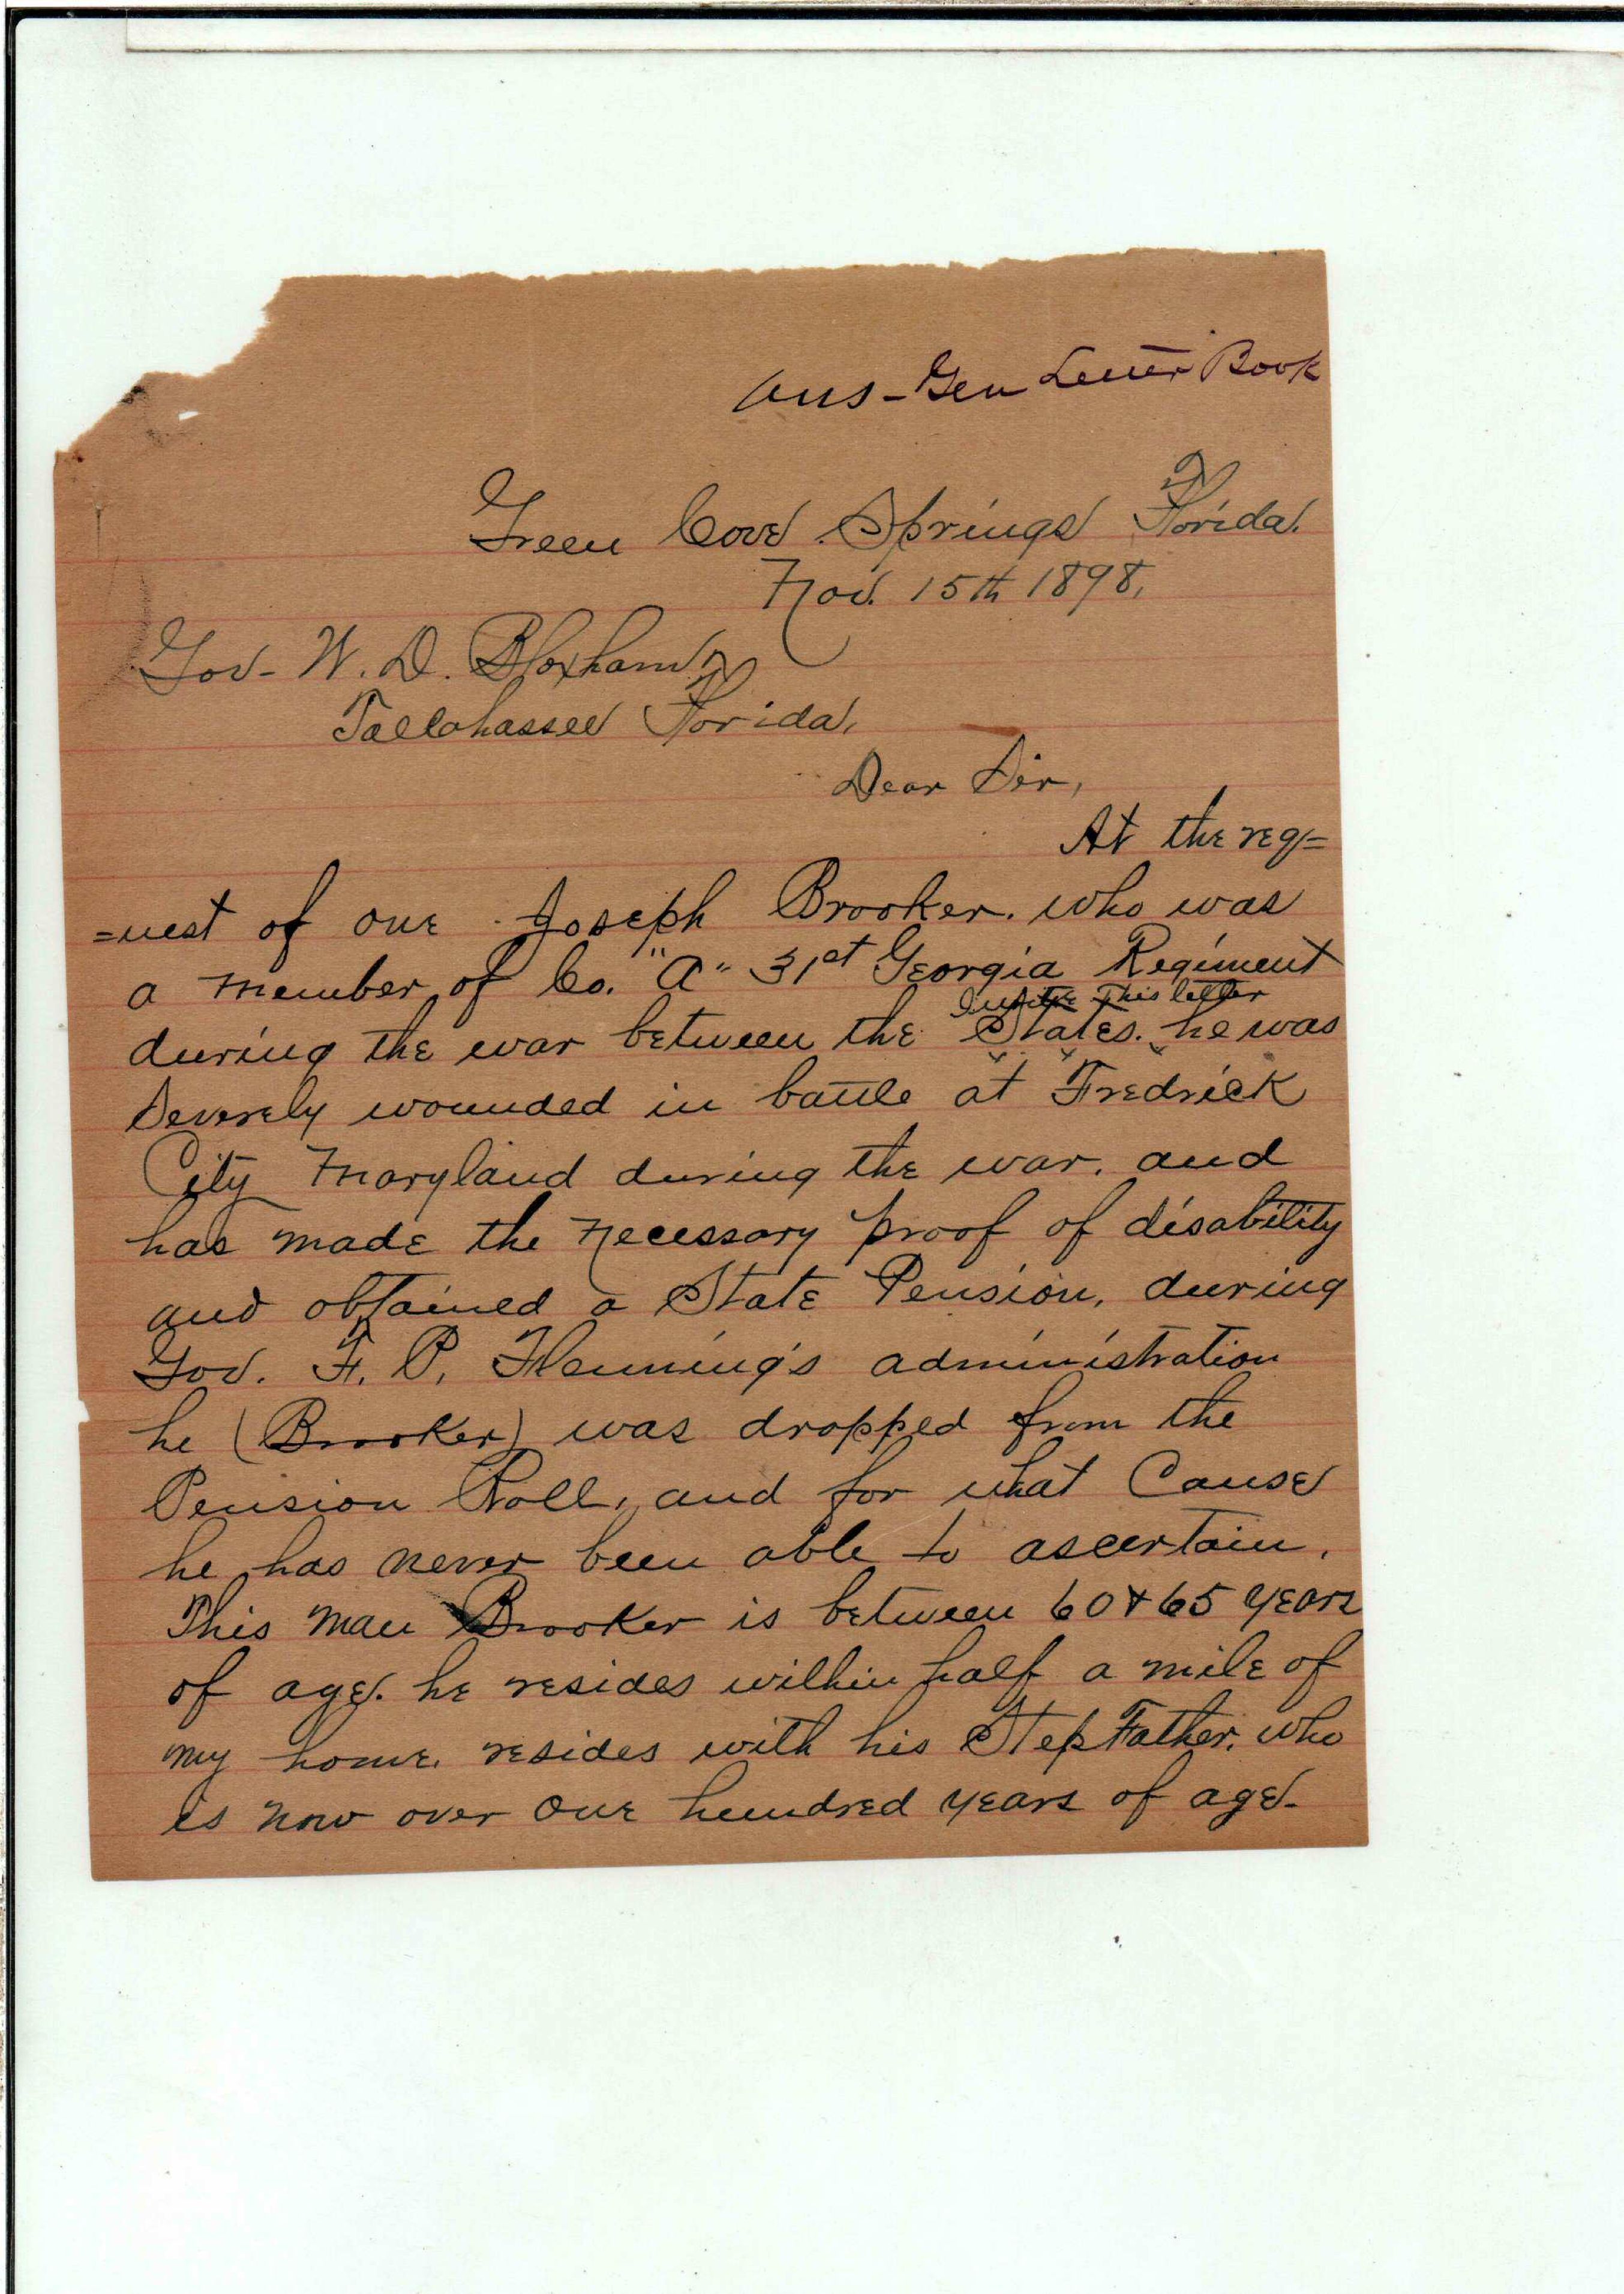 Ans - Gen Letter Book
Green Cove Springs Florida.
Nov. 15th 1898.
Gov- W. D. Bloxham,
Tallahassee Florida,
Dear Sir,
At the req=
=uest of one Joseph Brooker. who was
a member of Co. "A" 31st Georgia Regiment
I write this letter
during the war between the States. he was
Severely wounded in battle at Fredrick
City Maryland during the war. and
has made the necessary proof of disability
and obtained a State Pension, during
Gov. F. P. Flemming's administration
he (Brooker) was dropped from the
Pension Roll, and for what Cause
he has never been able to ascertain.
This man Brooker is between 60 & 65 years
of age. he resides within half a mile of
my home. resides with his Step Father. who
is now over one hundred years of age-